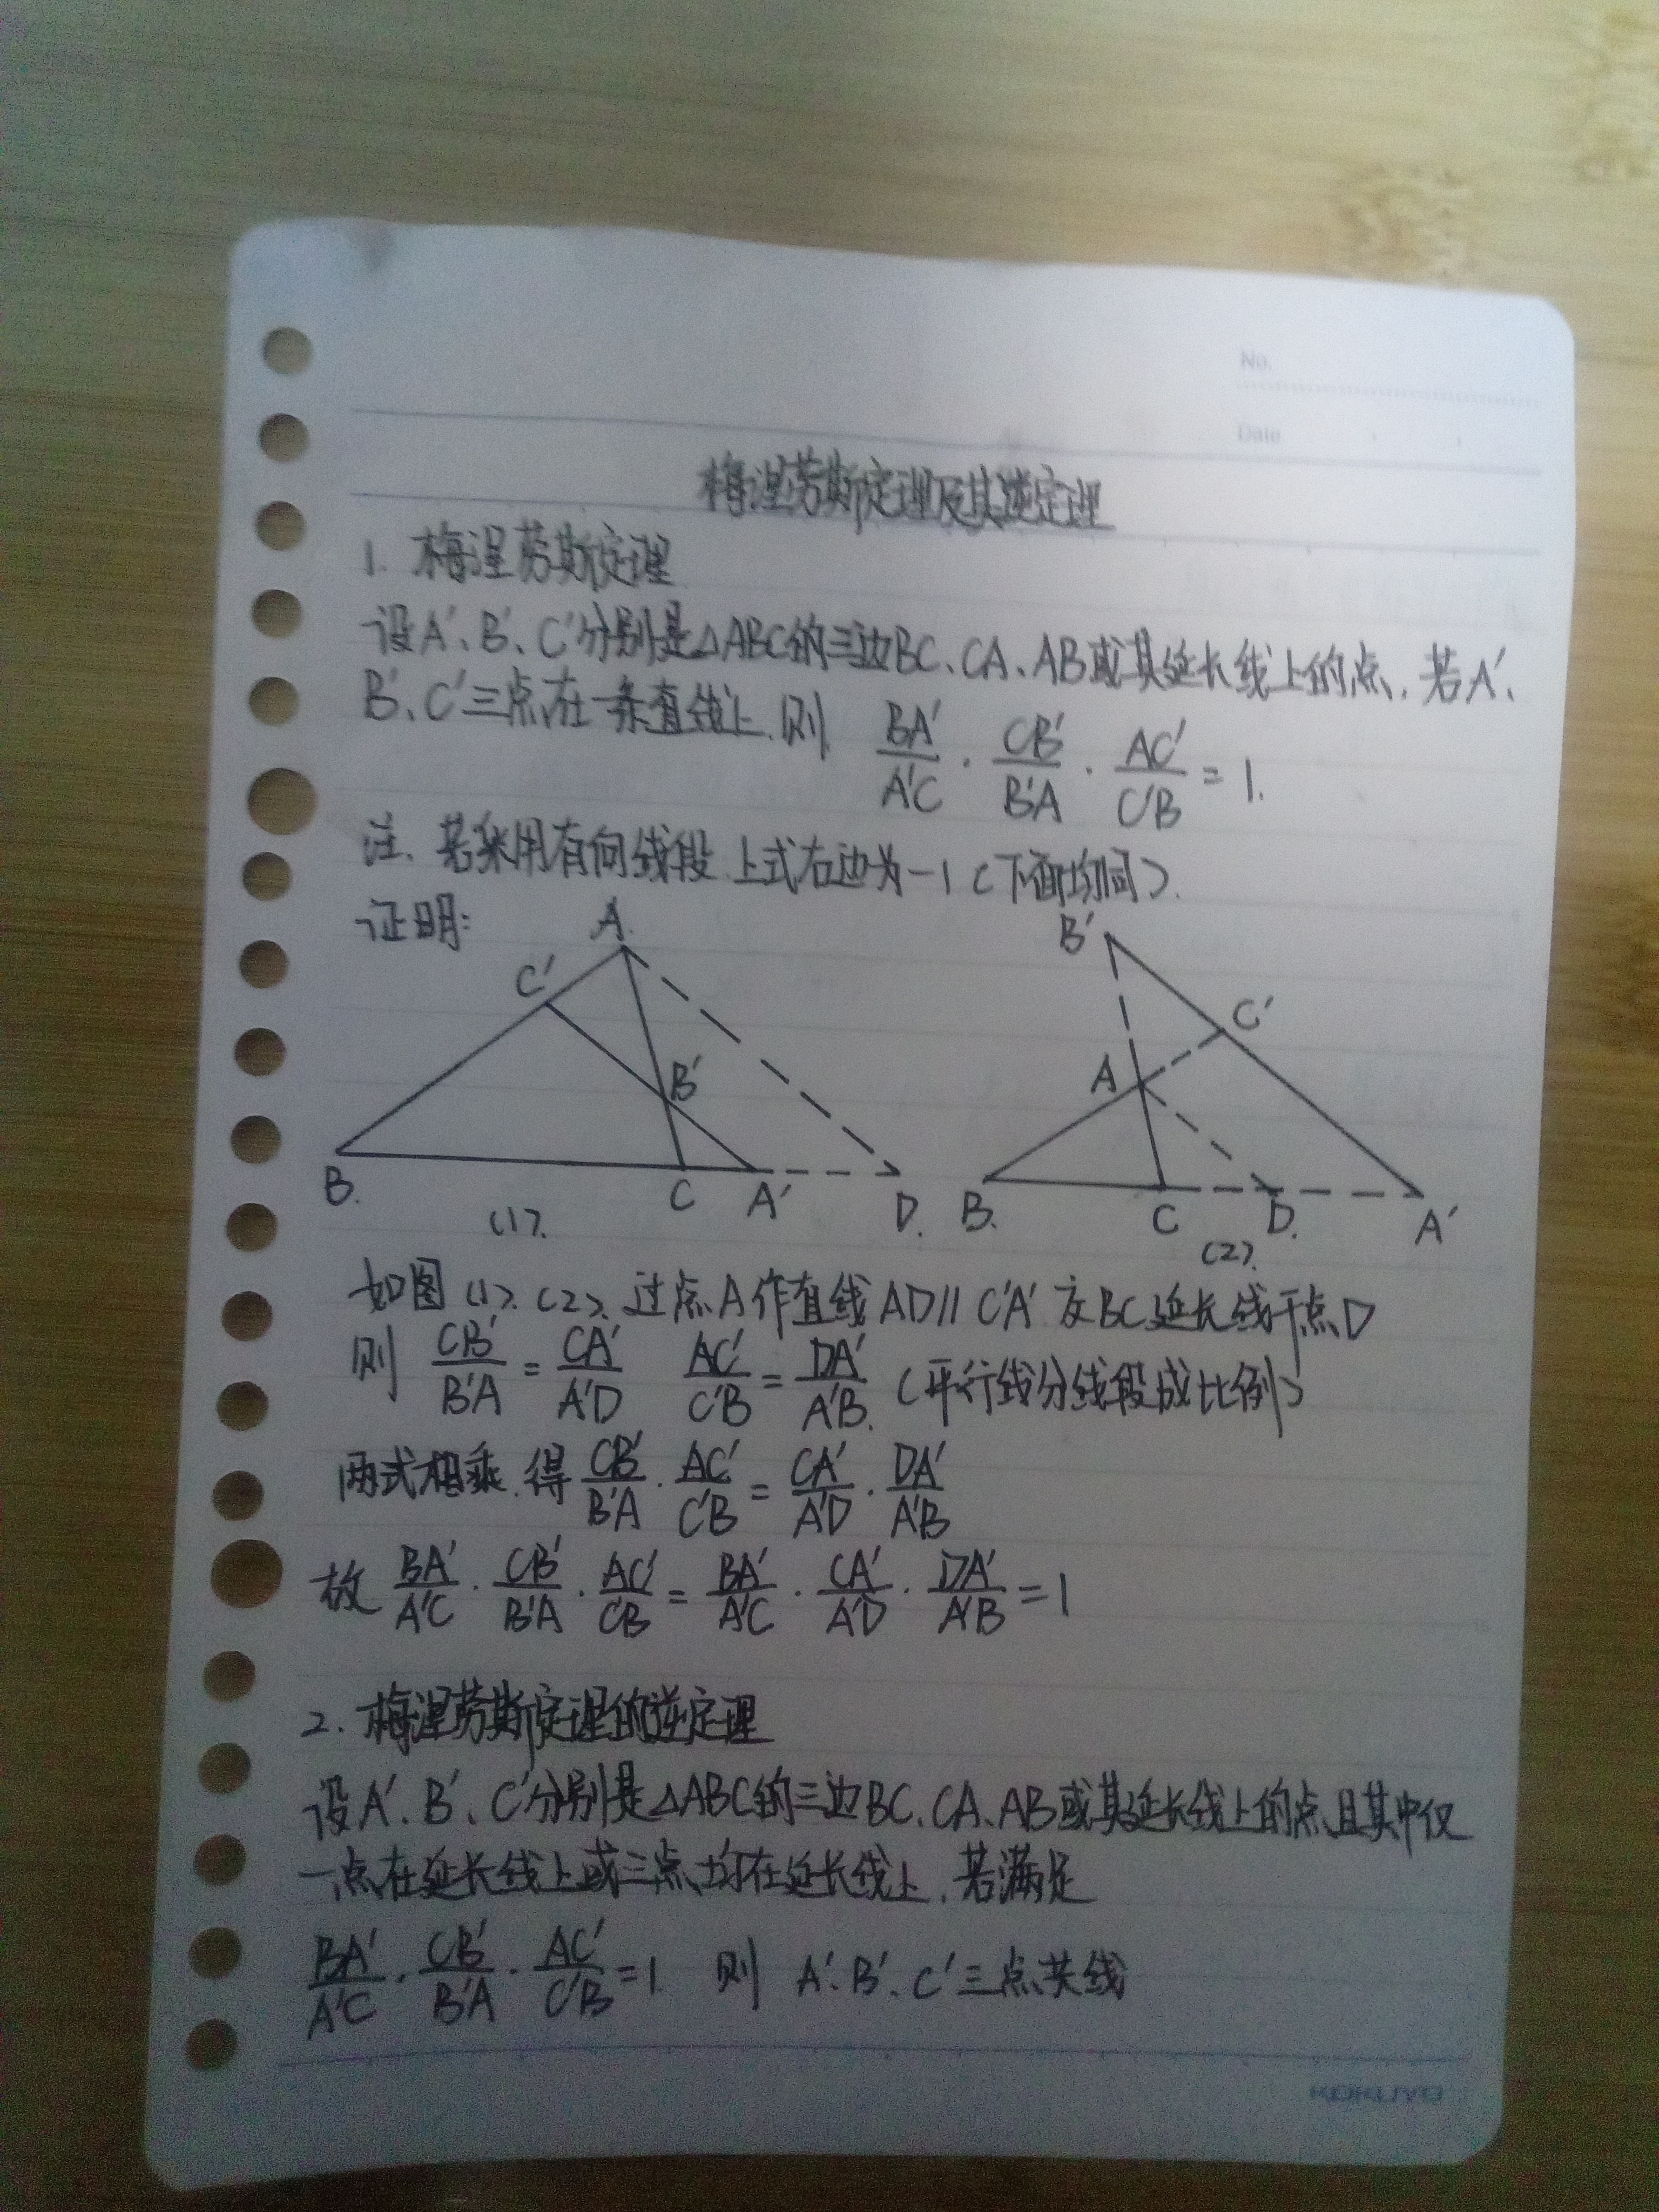 No.
Date
梅涅劳斯定理及其逆定理
1. 梅涅劳斯定理
设A′、B′、C′分别是△ABC的三边BC、CA、AB或其延长线上的点,若A′、
B′、C′三点在一条直线上,则 BA′/A′C · CB′/B′A · AC′/C′B = 1.
注. 若采用有向线段,上式右边为-1(下面均同).
证明:
A
C′
B′
B
C
A′
D
(1).
B′
C′
A
B
C
D
A′
(2).
如图(1)、(2)、过点A作直线AD∥C′A′交BC延长线于点D
则 CB′/B′A = CA′/A′D AC′/C′B = DA′/A′B (平行线分线段成比例)
两式相乘,得 CB′/B′A · AC′/C′B = CA′/A′D · DA′/A′B
故 BA′/A′C · CB′/B′A · AC′/C′B = BA′/A′C · CA′/A′D · DA′/A′B = 1
2. 梅涅劳斯定理的逆定理
设A′、B′、C′分别是△ABC的三边BC、CA、AB或其延长线上的点,且其中仅
一点在延长线上或三点均在延长线上,若满足
BA′/A′C · CB′/B′A · AC′/C′B = 1 则 A′、B′、C′三点共线
KOKUYO